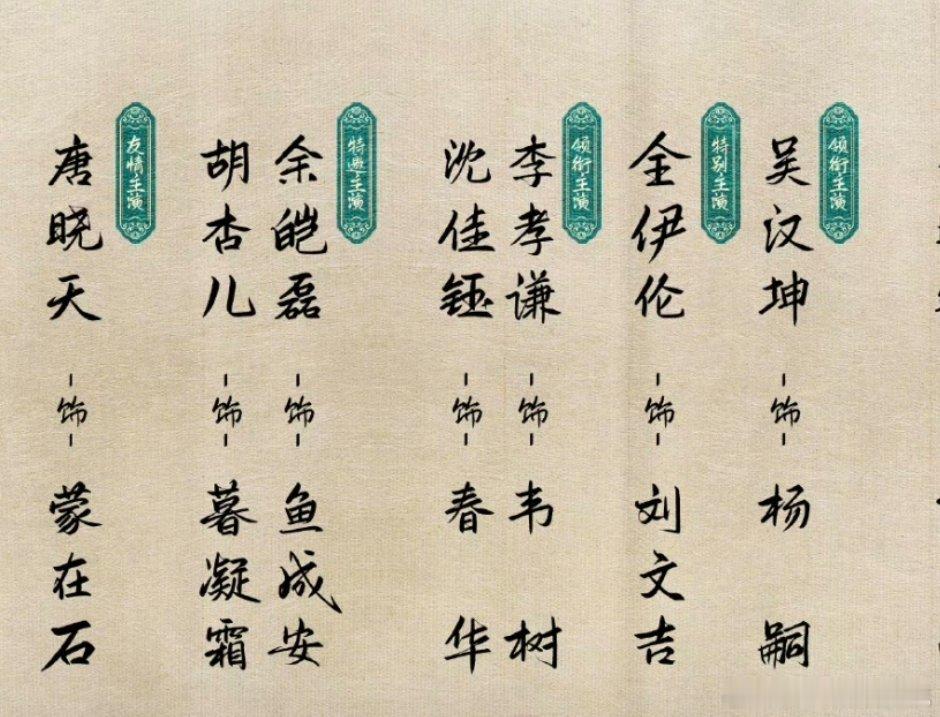 领衔主演
吴汉坤 饰 杨嗣
特别主演
全伊伦 饰 刘文吉
领衔主演
李孝谦 饰 韦树
沈佳钰 饰 春华
特邀主演
余皑磊 饰 鱼成安
胡杏儿 饰 暮凝霜
友情主演
唐晓天 饰 蒙在石